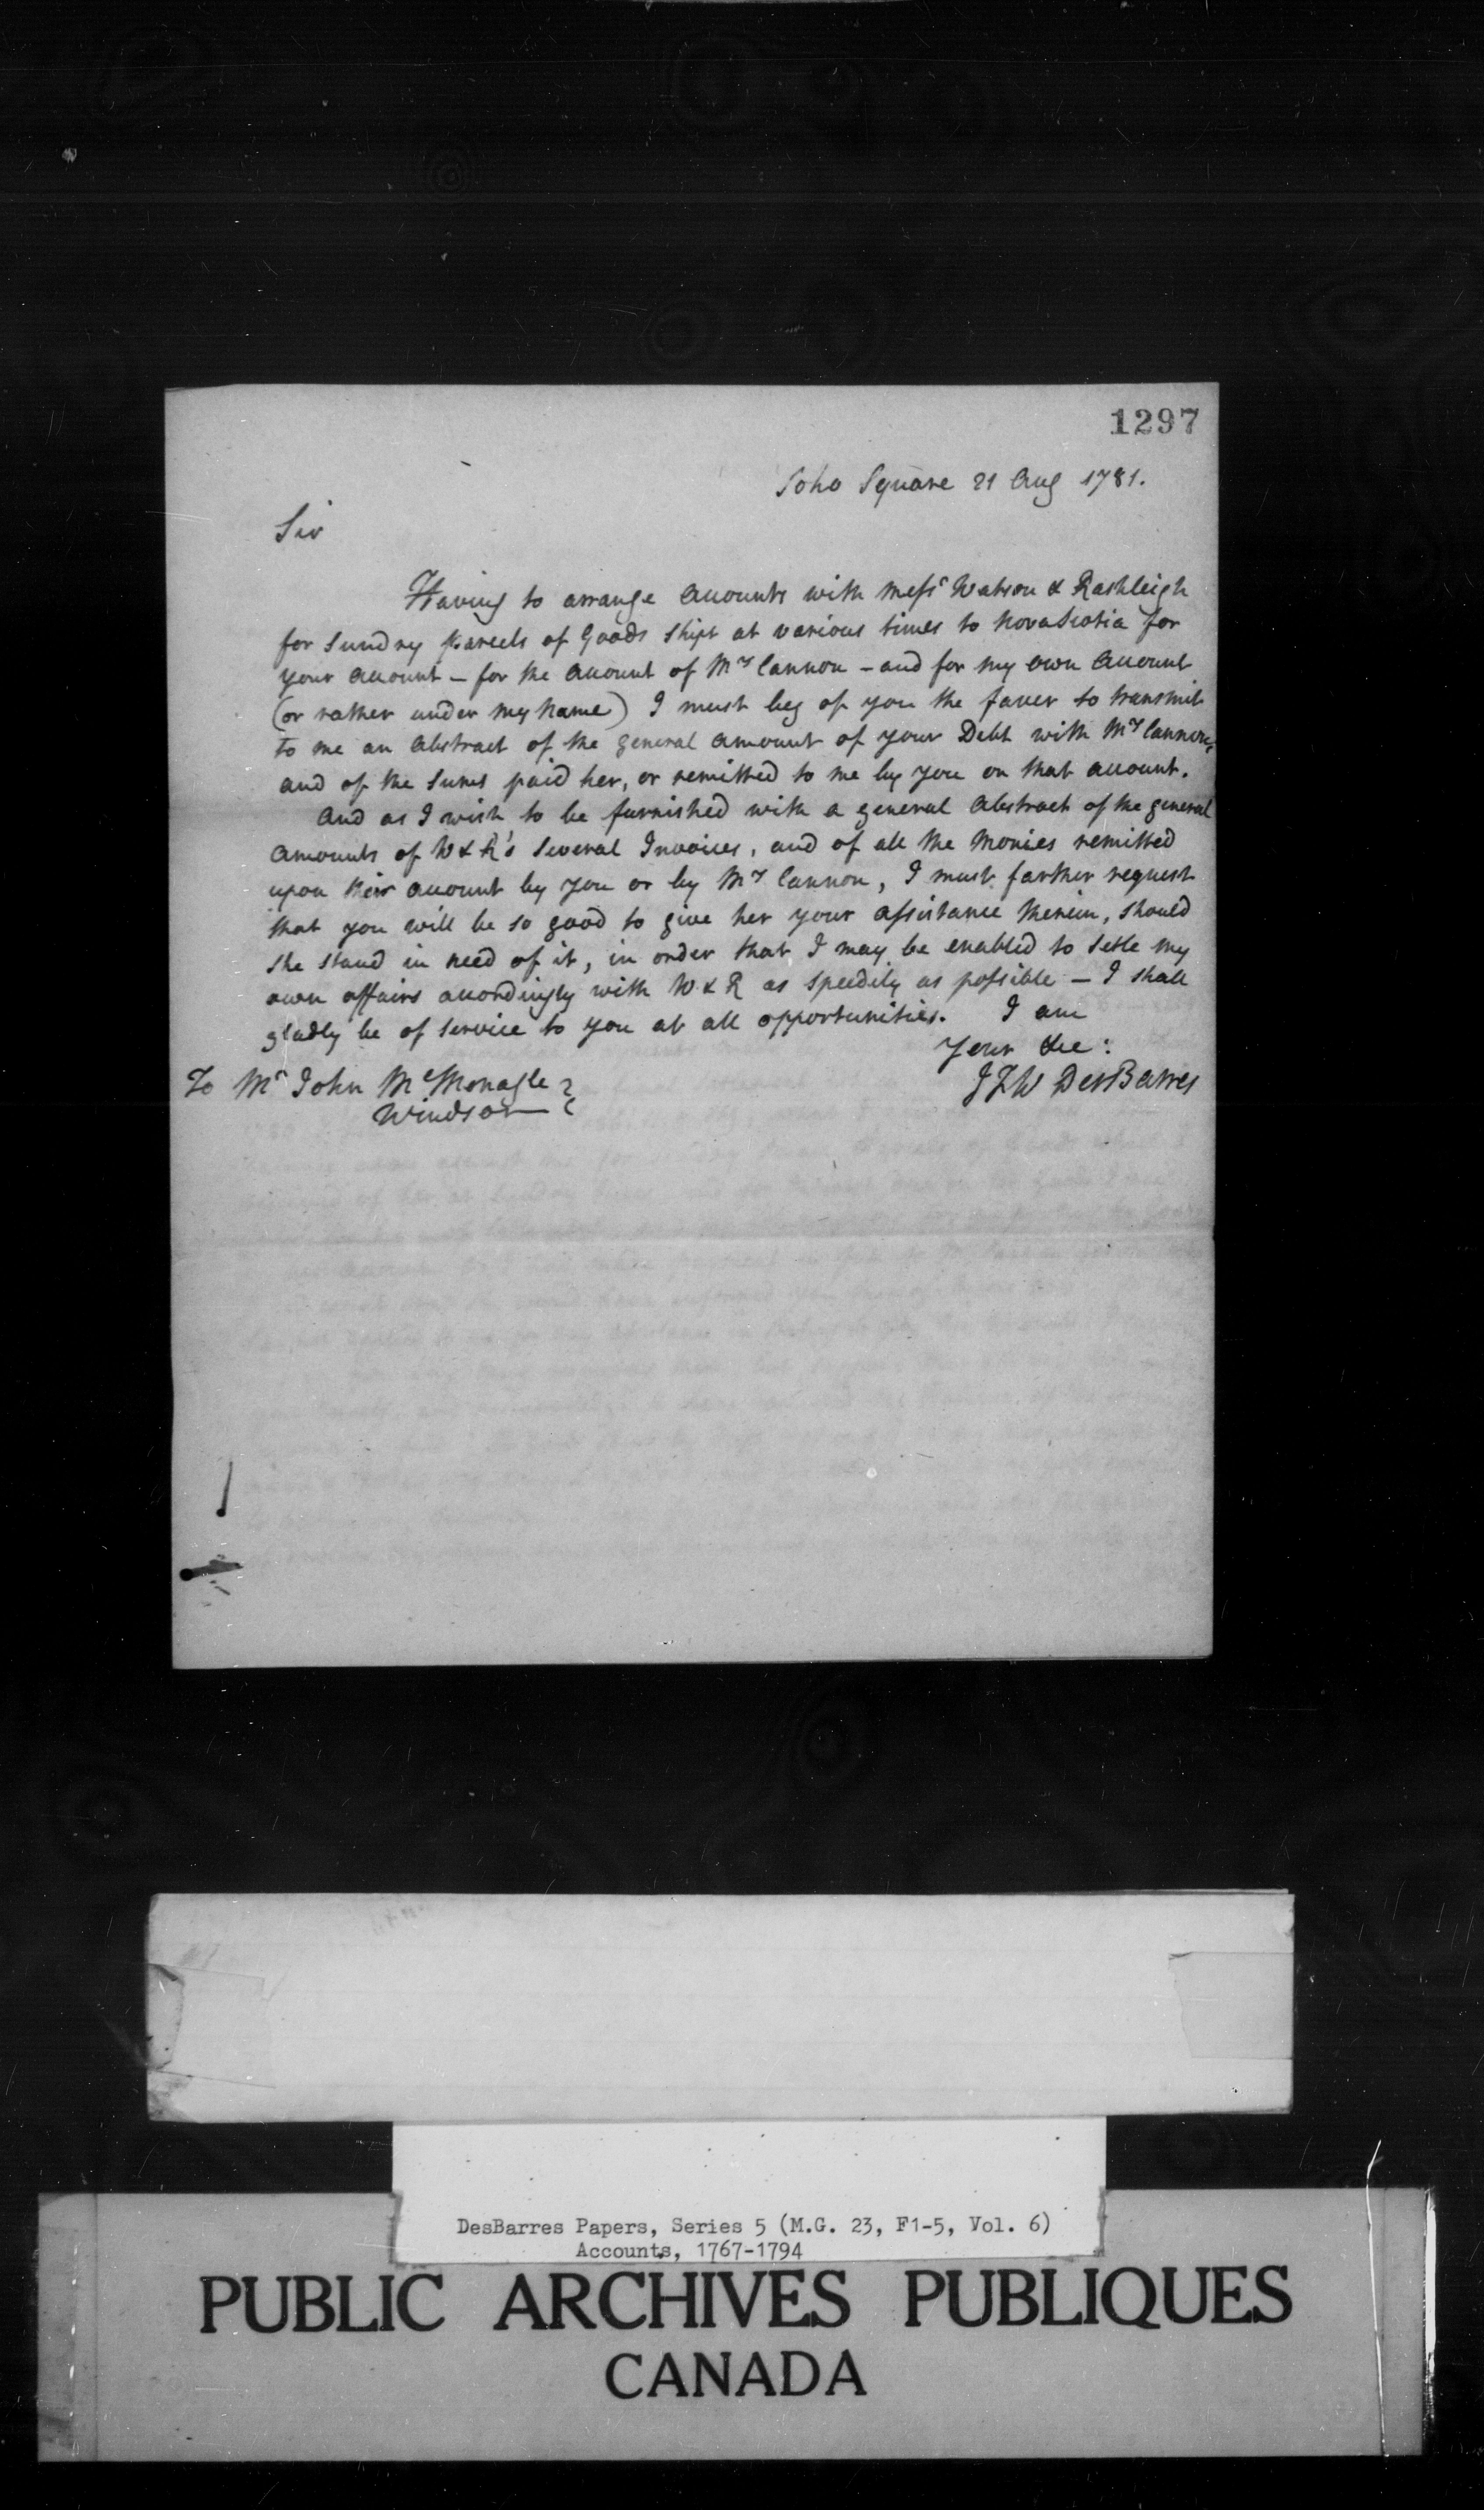 1297
Soho Square 21 Aug 1781.
Sir
Having to arrange Accounts with Messrs Watson & Rashleigh
for Sundry Parcels of Goods Shipt at various times to Nova Scotia for
your Account – for the Account of Mrs Cannon – and for my own Account
(or rather under my Name) I must beg of you the faver to transmit
to me an Abstract of the general Amount of your Debt with Mrs Cannon,
and of the Sums paid her, or remitted to me by you on that account.
And as I wish to be furnished with a general Abstract of the general
Amounts of W & R's Several Invoices, and of all the Monies remitted
upon their account by you or by Mrs Cannon, I must farther request
that you will be so good to give her your Assistance therein, should
she stand in need of it, in order that I may be enabled to Setle my
own affairs accordingly with W & R as speedily as possible – I shall
gladly be of Service to you at all opportunities. I am
Your &c:
JFW DesBarres
To Mr John McMonagle
Windsor
DesBarres Papers, Series 5 (M.G. 23, F1-5, Vol. 6)
Accounts, 1767-1794
PUBLIC ARCHIVES PUBLIQUES
CANADA